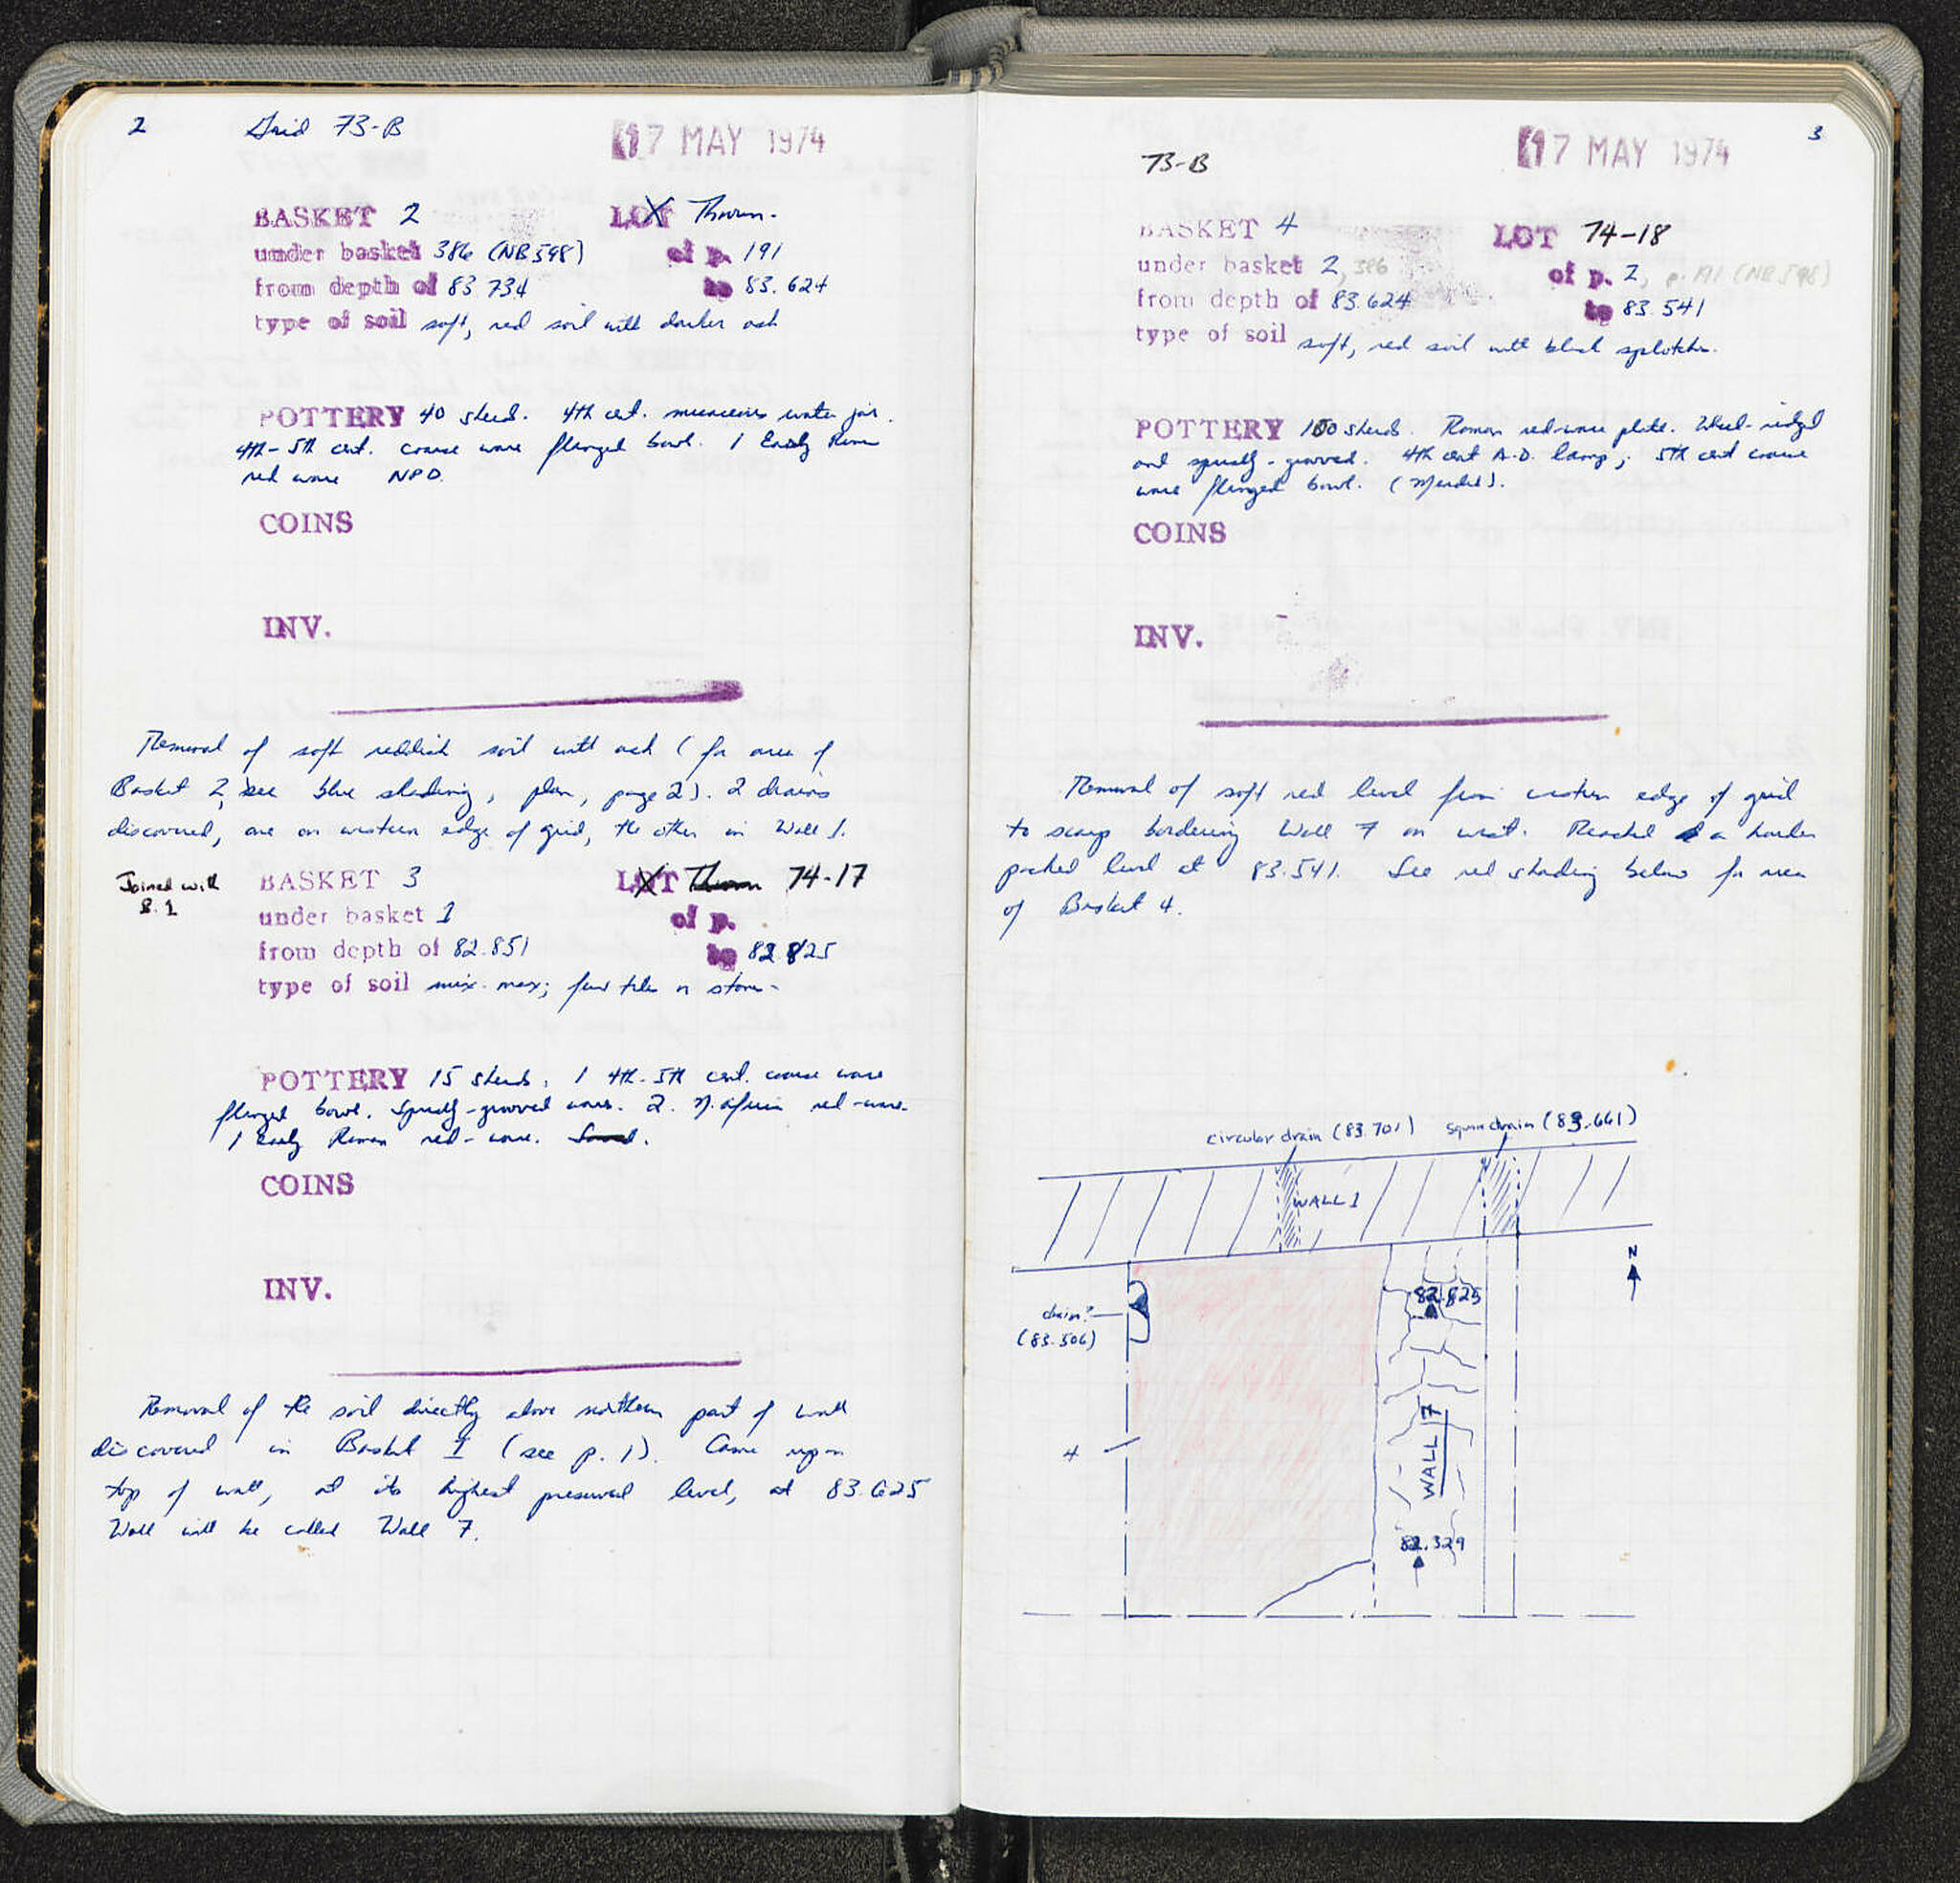 2 Grid 73-B 17 MAY 1974
BASKET 2 LOT Thrown.
under basket 386 (NB 598) of p. 191
from depth of 83.734 to 83.624
type of soil soft, red soil with darker ash
POTTERY 40 sherds. 4th cent. micaceous water jar.
4th-5th cent. coarse ware flanged bowl. 1 Early Roman
red ware NPD.
COINS
INV.
Removal of soft reddish soil with ash (for area of
Basket 2, see blue shading, plan, page 2). 2 drains
discovered, one on western edge of grid, the other in Wall 1.
Joined with
B. 1
BASKET 3 LOT Thrown 74-17
under basket 1 of p.
from depth of 82.851 to 82.825
type of soil mix. max; few tiles or stones
POTTERY 15 sherds, 1 4th-5th cent. coarse ware
flanged bowl. Spirally-grooved wares. 2. N. African red-ware.
1 Early Roman red-ware. Saved.
COINS
INV.
Removal of the soil directly above northern part of wall
discovered in Basket 1 (see p. 1). Came upon
top of wall, at its highest preserved level, at 83.625
Wall will be called Wall 7.
73-B 17 MAY 1974 3
BASKET 4 LOT 74-18
under basket 2, 386 of p. 2, p. 191 (NB 598)
from depth of 83.624 to 83.541
type of soil soft, red soil with black splotches.
POTTERY 100 sherds. Roman red-ware plate. Wheel-ridged
and spirally-grooved. 4th cent A.D. lamp; 5th cent coarse
ware flanged bowl.
COINS
INV.
Removal of soft red level from western edge of grid
to scarp bordering Wall 7 on west. Reached a harder
packed level at 83.541. See red shading below for area
of Basket 4.
circular drain (83.701) square drain (83.661)
WALL 1
N
drain?
(83.506)
82.825
4
WALL 7
82.329